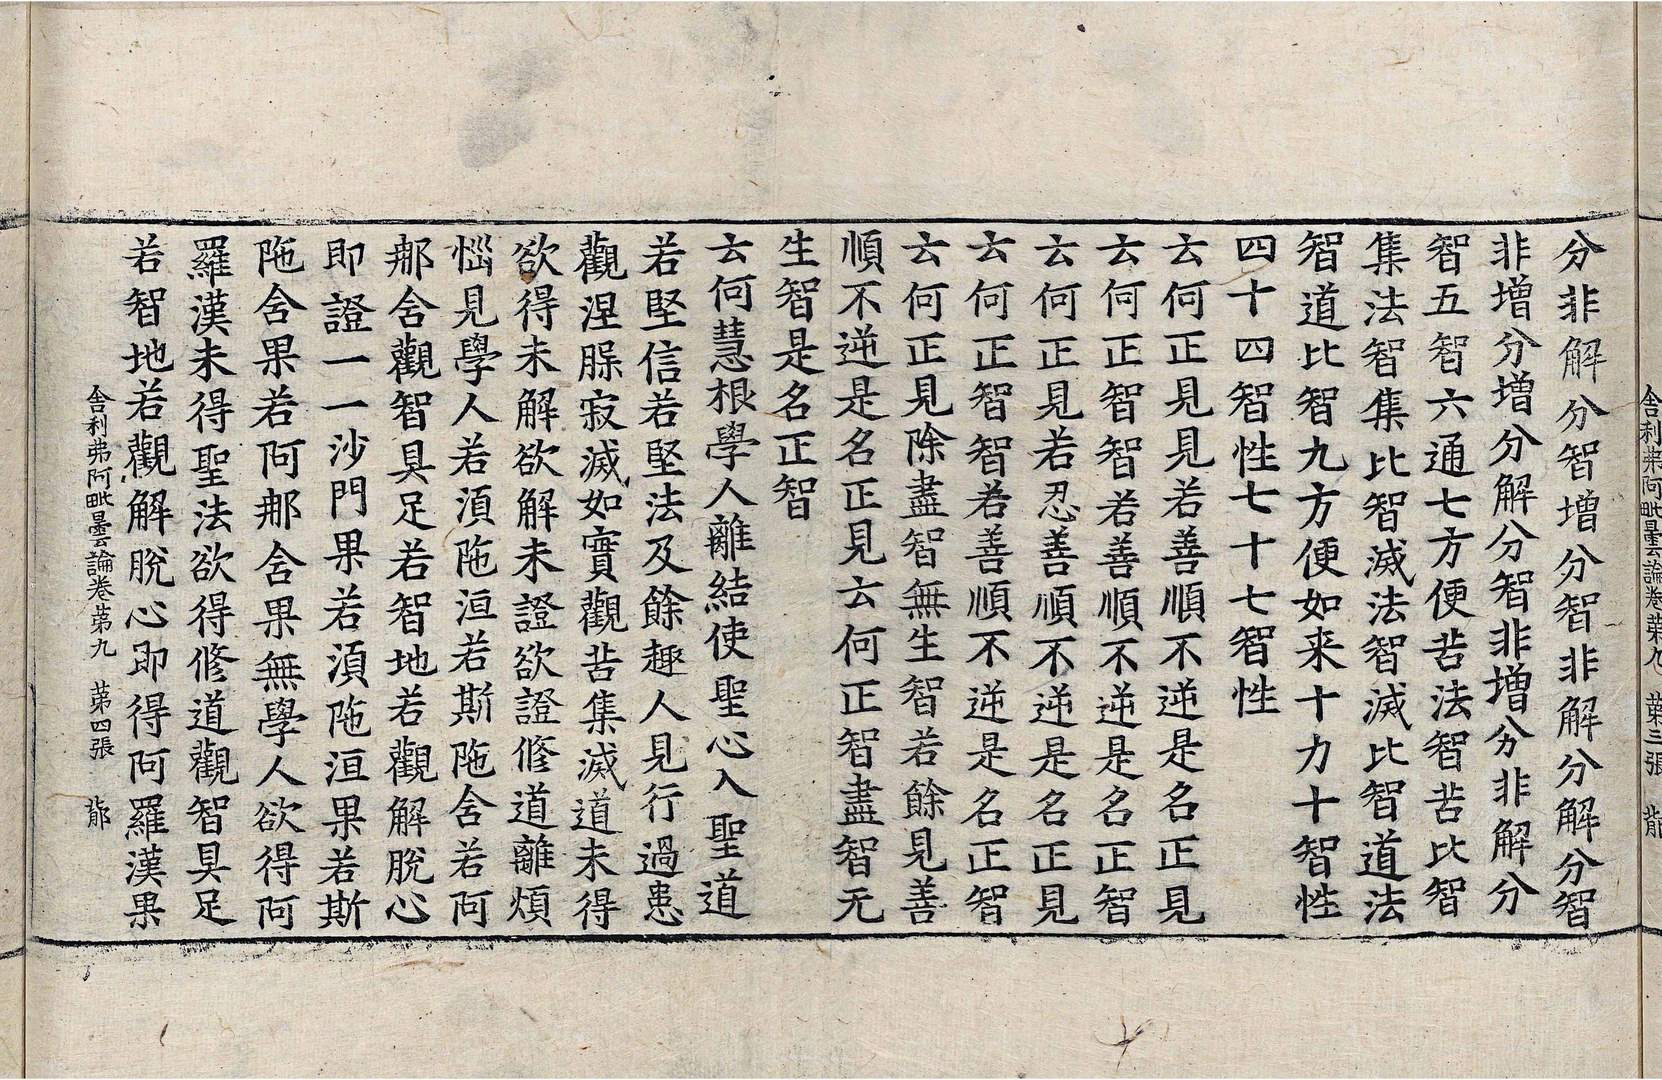 舍利弗阿毗曇論卷第九 第三張 龍
分非解分智增分智非解分解分智
非增分增分解分智非增分非解分
智五智六通七方便苦法智苦比智
集法智集比智滅法智滅比智道法
智道比智九方便如来十力十智性
四十四智性七十七智性
云何正見見若善順不逆是名正見
云何正智智若善順不逆是名正智
云何正見若忍善順不逆是名正見
云何正智智若善順不逆是名正智
云何正見除盡智無生智若餘見善
順不逆是名正見云何正智盡智无
生智是名正智
云何慧根學人離結使聖心入聖道
若堅信若堅法及餘趣人見行過患
觀涅槃寂滅如實觀苦集滅道未得
欲得未解欲解未證欲證修道離煩
惱見學人若湏陁洹若斯陁含若阿
那含觀智具足若智地若觀解脫心
即證一一沙門果若湏陁洹果若斯
陁含果若阿那含果無學人欲得阿
羅漢未得聖法欲得修道觀智具足
若智地若觀解脫心即得阿羅漢果
舍利弗阿毗曇論卷第九 第四張 龍